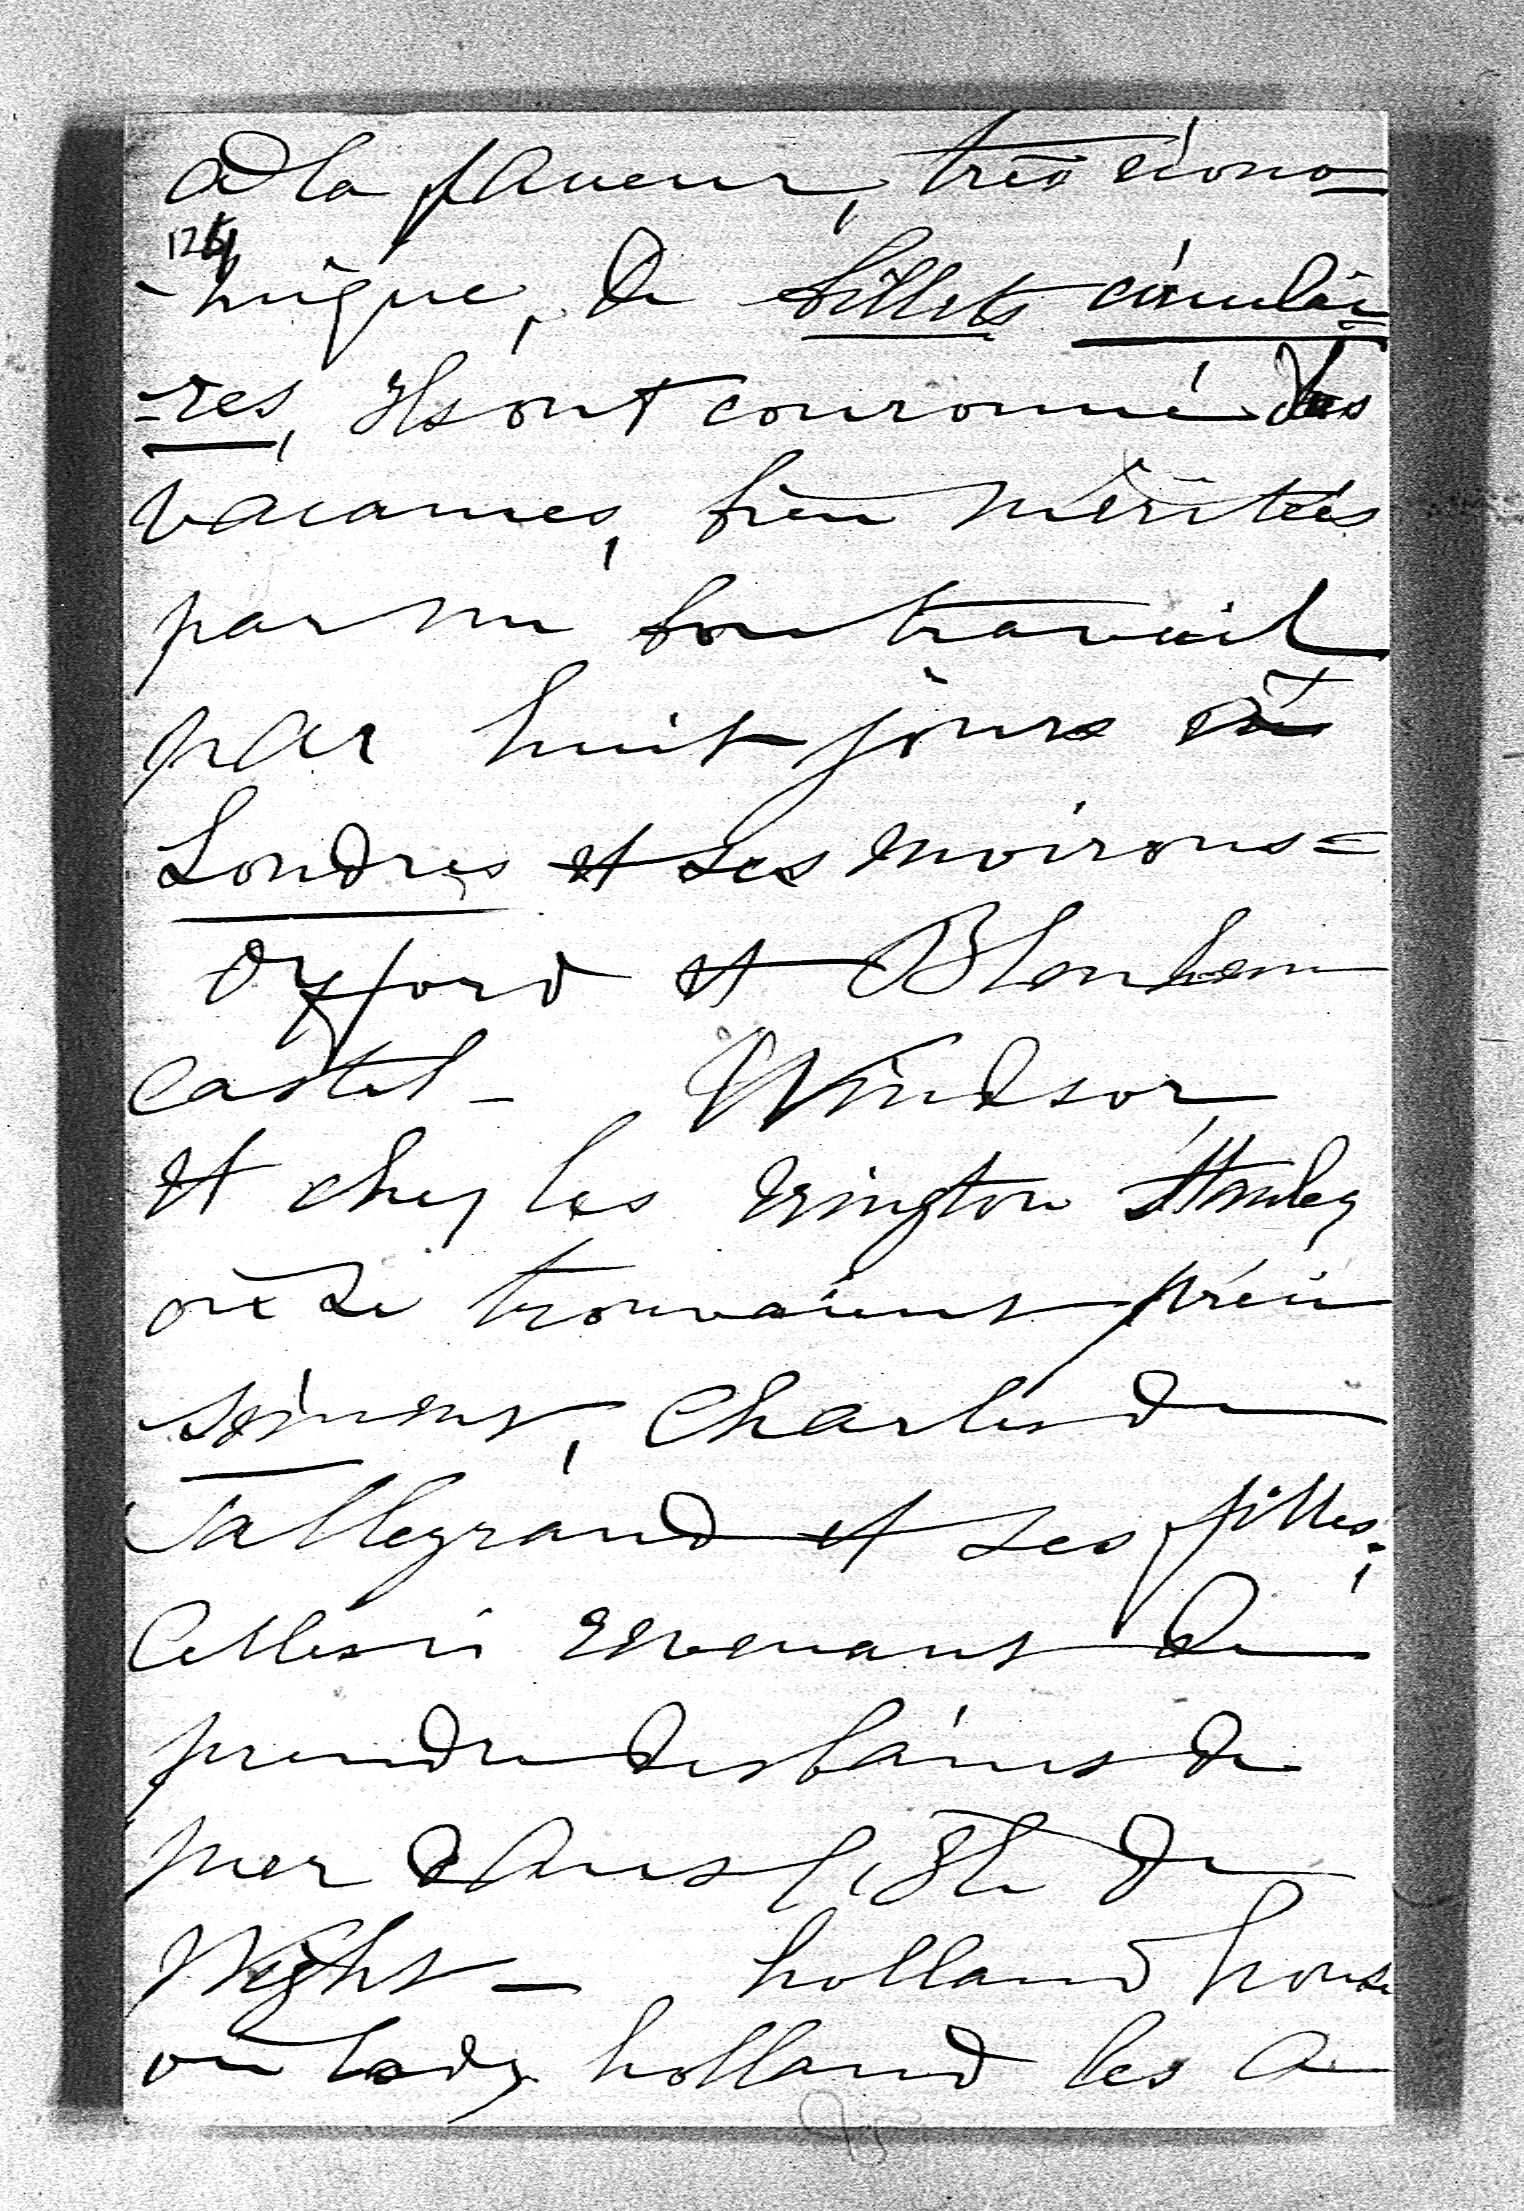 à la faveur, très écono=
126
-mique, de billets circulai=
=res, Ils ont couronné des
vacances, bien méritées
par un bon travail
par huit jours à
Londres et ses environs=
Oxford et Blenheim
castel - Windsor,
et chez les Erington Stanley
où se trouvaient préci
sément, Charles de
Talleyrand et ses filles,
Celles ci revenant de
prendre des bains de
mer dans l'isle de
Wight - holland house
où lady holland les a